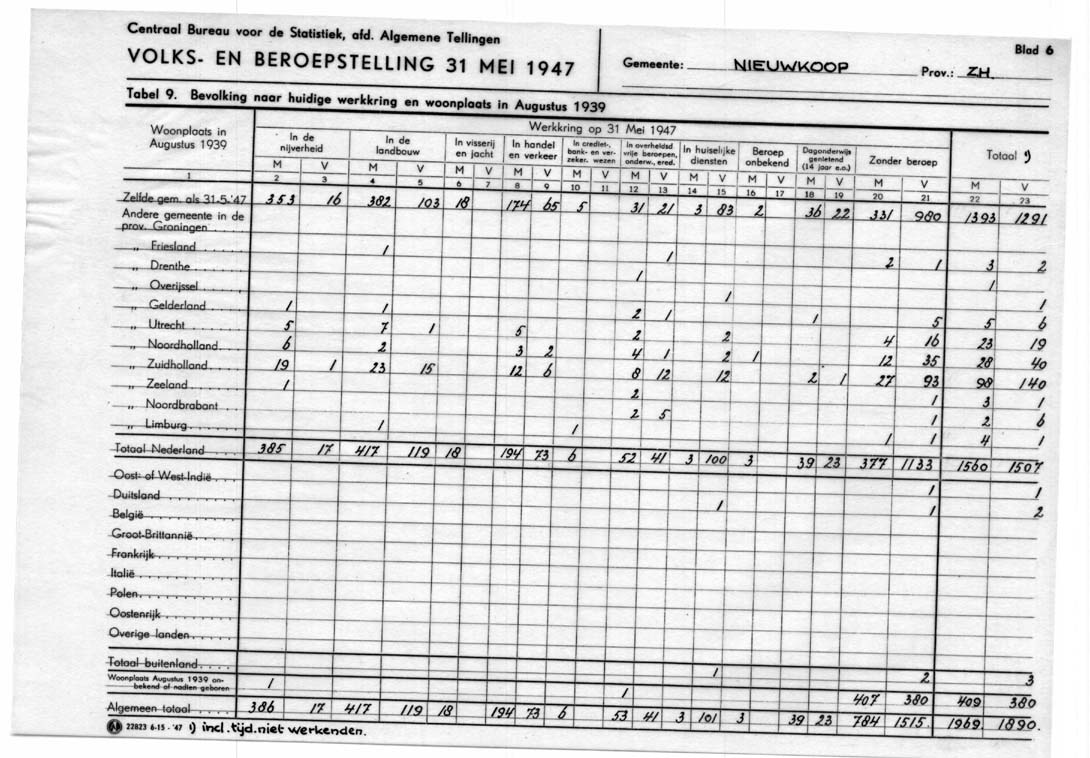 Centraal Bureau voor de Statistiek, afd. Algemene Tellingen
VOLKS- EN BEROEPSTELLING 31 MEI 1947
Gemeente: NIEUWKOOP Prov.: ZH.
Blad 6
Tabel 9. Bevolking naar huidige werkkring en woonplaats in Augustus 1939
Woonplaats in
Augustus 1939
Werkkring op 31 Mei 1947
In de
nijverheid
In de
landbouw
In visserij
en jacht
In handel
en verkeer
In crediet-,
bank- en ver-
zeker. wezen
In overheidsd
vrije beroepen,
onderw., ered.
In huiselijke
diensten
Beroep
onbekend
Dagonderwijs
genietend
(14 jaar e.o.)
Zonder beroep
Totaal 1)
M V M V M V M V M V M V M V M V M V M V M V
1 2 3 4 5 6 7 8 9 10 11 12 13 14 15 16 17 18 19 20 21 22 23
Zelfde gem. als 31-5-'47 353 16 382 103 18 174 65 5 31 21 3 83 2 36 22 331 980 1393 1291
Andere gemeente in de
prov. Groningen . . . .
„ Friesland . . . . . 1 1 2 1 3 2
„ Drenthe . . . . . . 1 1
„ Overijssel . . . . . 1 1
„ Gelderland . . . . 1 1 2 1 1 5 5 6
„ Utrecht . . . . . . 5 7 1 5 2 2 4 16 23 19
„ Noordholland . . . 6 2 3 2 4 1 2 1 12 35 28 40
„ Zuidholland . . . . 19 1 23 15 12 6 8 12 12 2 1 27 93 98 140
„ Zeeland . . . . . . 1 2 1 3 1
„ Noordbrabant . . . 2 5 1 2 6
„ Limburg . . . . . . 1 1 1 1 4 1
Totaal Nederland . . . . 385 17 417 119 18 194 73 6 52 41 3 100 3 39 23 377 1133 1560 1507
Oost- of West-Indië . . . 1 1
Duitsland . . . . . . . . 1 1 2
België . . . . . . . . .
Groot-Brittannië . . . . .
Frankrijk . . . . . . . .
Italië . . . . . . . . .
Polen . . . . . . . . .
Oostenrijk . . . . . . .
Overige landen . . . . .
Totaal buitenland . . . . 1 2 3
Woonplaats Augustus 1939 on-
bekend of nadien geboren 1 1 407 380 409 380
Algemeen totaal . . . . 386 17 417 119 18 194 73 6 53 41 3 101 3 39 23 784 1515. 1969. 1890.
22823 6-15 - '47 1) incl. tijd. niet werkenden.